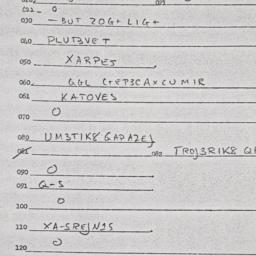 021 O
030 – BUT ZOG+ LIG+
040 PLUTBVET
050 XARPES
060 GGL CTEP3CAXCUMIR
061 KATOVES
070 O
080 UM3TIK8 GAPAZEJ
081 082 TROJ3RIK8
090 O
091 Q-5
100 O
110 XA-SREJN25
120 O